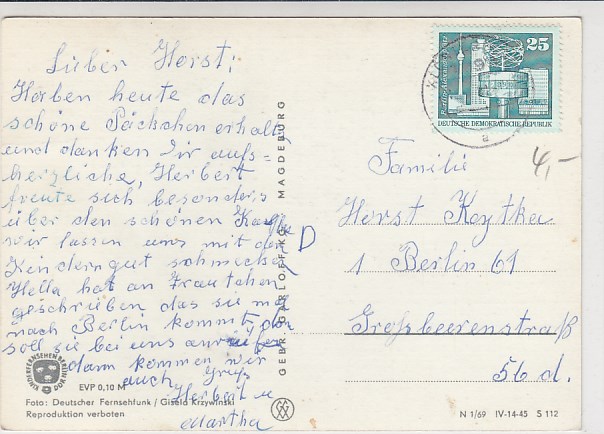 Lieber Horst;
Haben heute das
schöne Päckchen erhalt,
und danken Dir aufs-
herzliche, Herbert
freute sich besonders
über den schönen
wir lassen uns mit den
Kindern gut schmecke
Hella hat an Frautchen
geschrieben das sie m
nach Berlin kommt, dan
soll sie bei uns anrufen
dann kommen wir
auch Gruß
Herbert u
Martha
KINDERFERNSEHEN BERLIN
EVP 0,10 M
Foto: Deutscher Fernsehfunk / Gisela Krzywinski
Reproduktion verboten
GEBR. GARLOFF KG MAGDEBURG
D
25
Berlin-Alexanderplatz
DEUTSCHE DEMOKRATISCHE REPUBLIK
a
4,-
Familie
Horst Koytka
1 Berlin 61
Großbeerenstraß
56 d.
N 1/69 IV-14-45 S 112